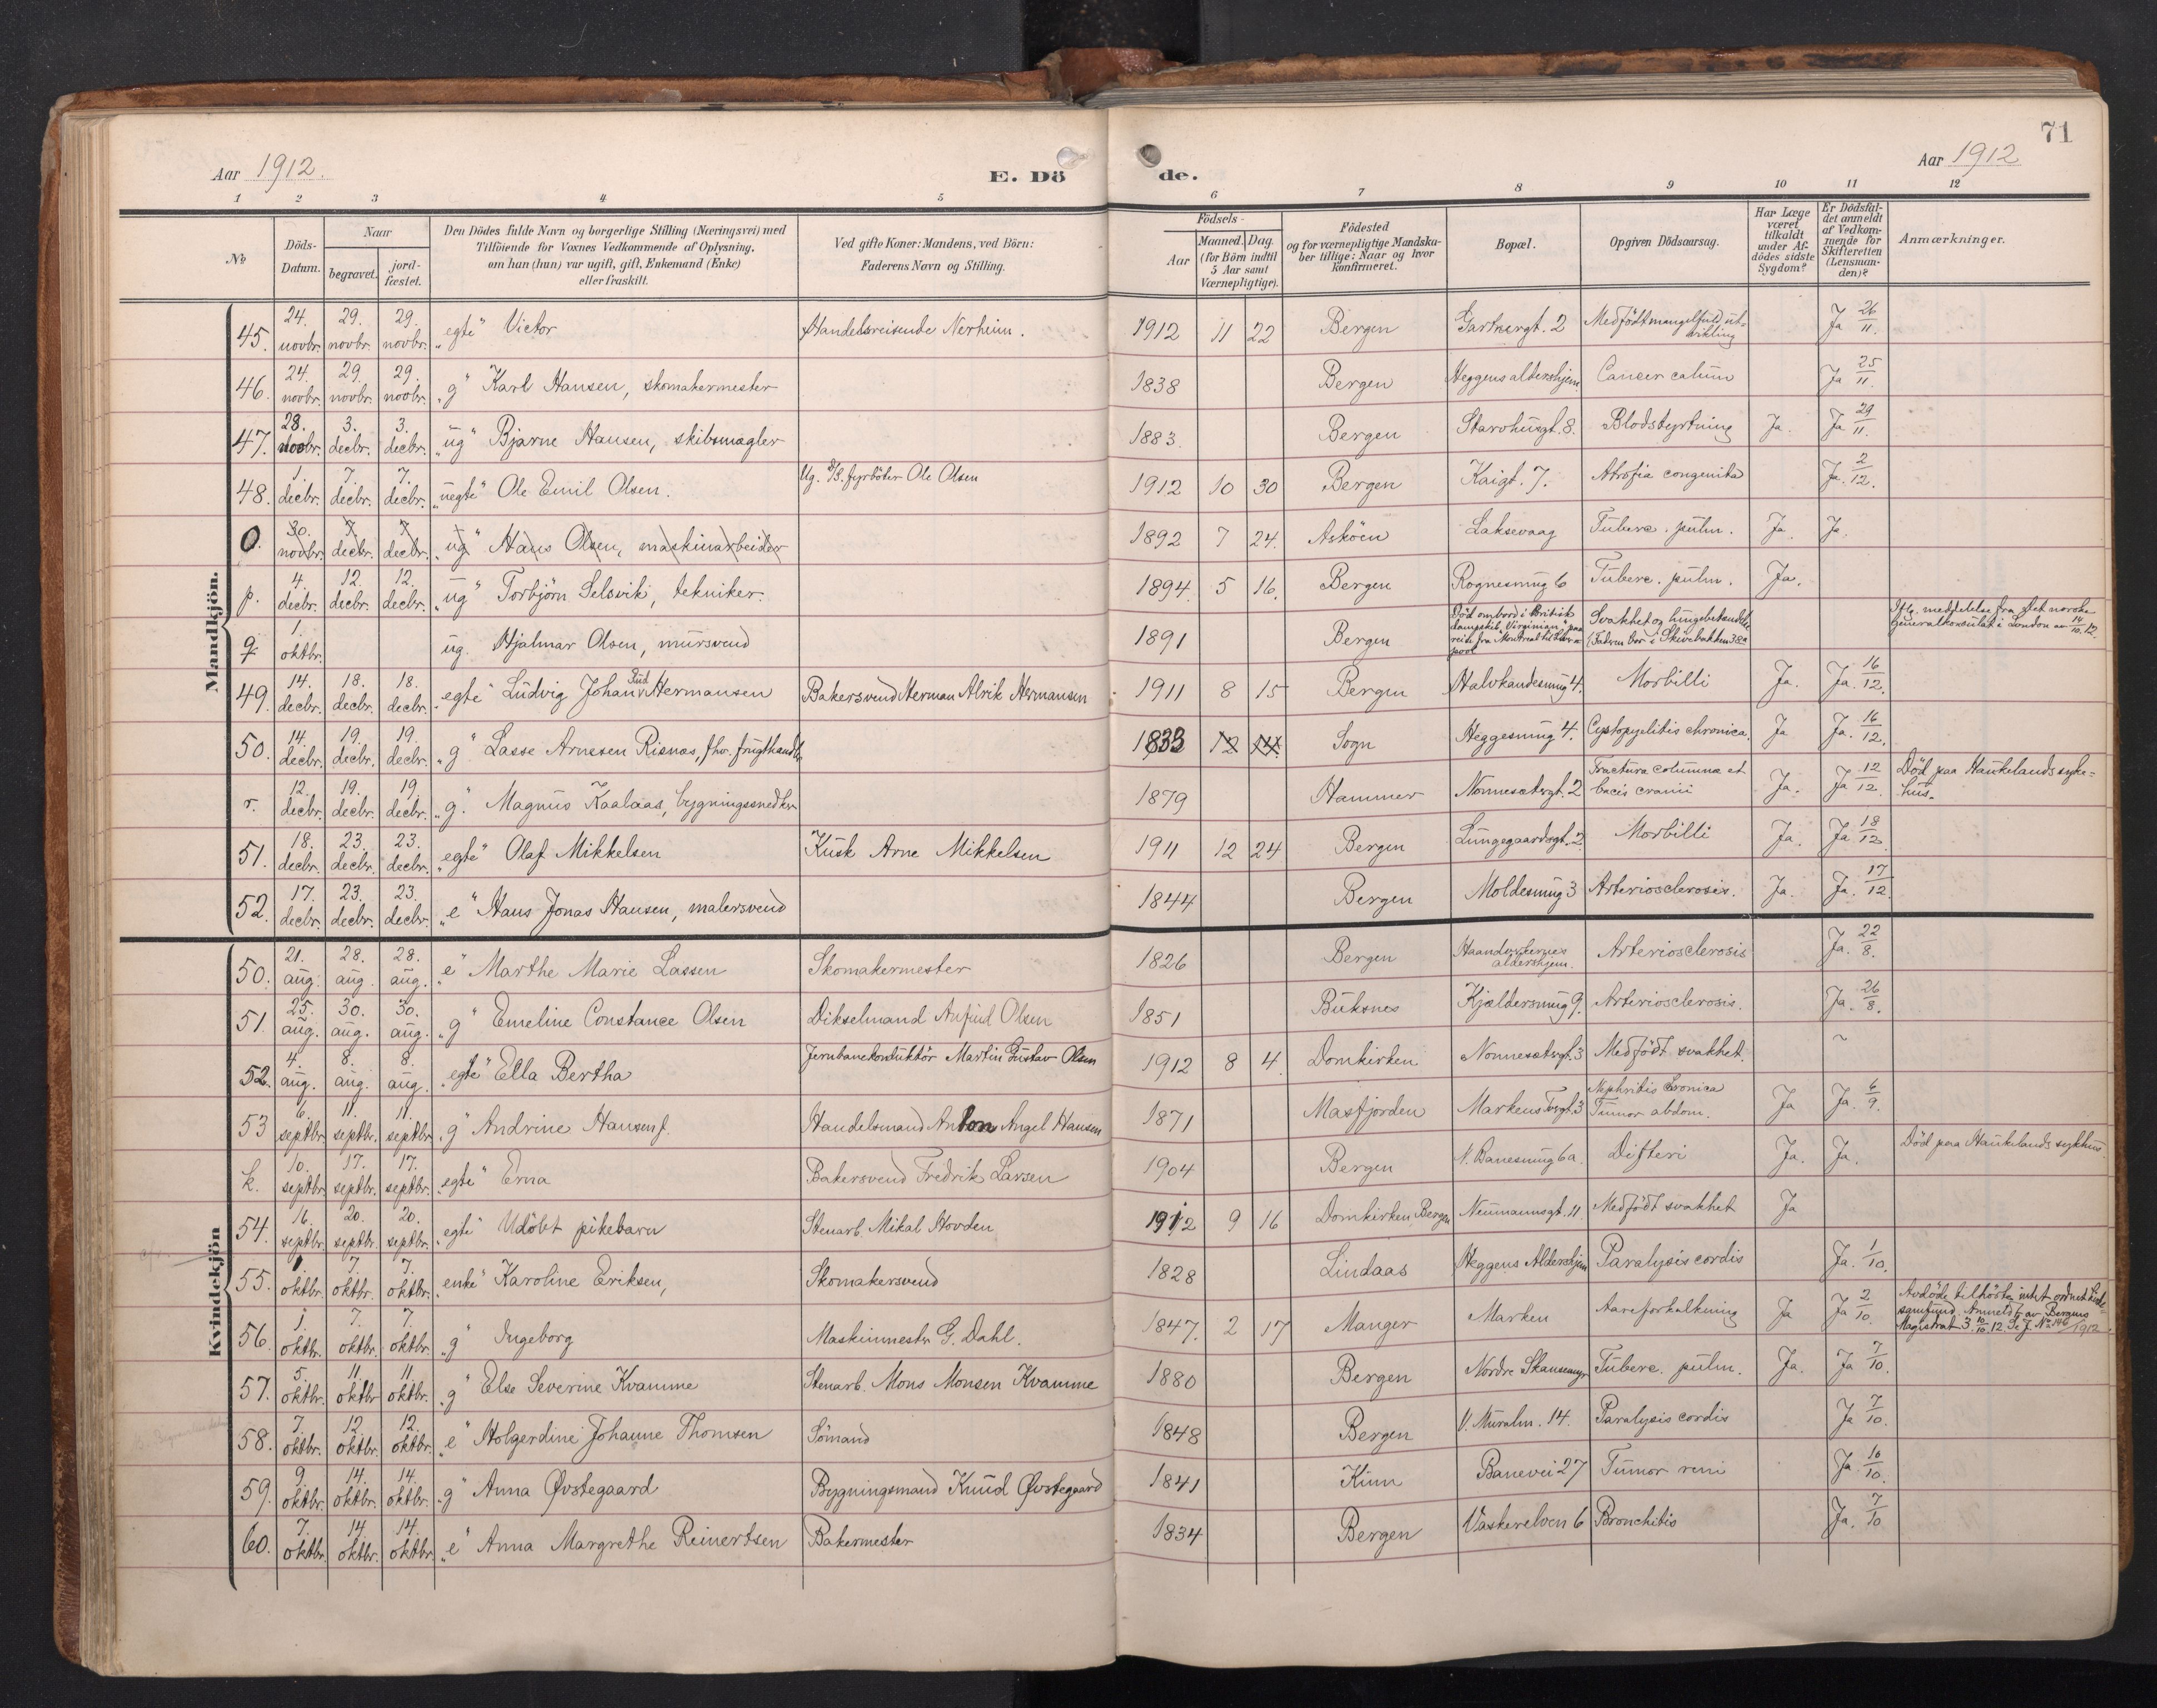 71
Aar 1912.
E. Dö de.
Aar 1912
1 2 3 4 5 6 7 8 9 10 11 12
No
Döds-Datum.
Naar
begravet.
jord-fæstet.
Den Dödes fulde Navn og borgerlige Stilling (Næringsvei) med
Tilföiende for Voxnes Vedkommende af Oplysning,
om han (hun) var ugift, gift, Enkemand (Enke)
eller fraskilt.
Ved gifte Koner: Mandens, ved Börn:
Faderens Navn og Stilling.
Födsels-
Aar
Maaned. Dag.
(for Börn indtil
5 Aar samt
Værnepligtige).
Födested
og for værnepligtige Mandska-
ber tillige: Naar og hvor
konfirmeret.
Bopæl.
Opgiven Dödsaarsag.
Har Læge
været
tilkaldt
under Af-
dödes sidste
Sygdom?
Er Dödsfal-
det anmeldt
af Vedkom-
mende for
Skifteretten
(Lensman-
den)?
Anmærkninger.
Mandkjön.
45. 24. novbr. 29. novbr. 29. novbr. "egte" Victor Handelsreisende Nerheim. 1912 11 22 Bergen Gartnergt. 2 Medfödt mangelfuld utvikling Ja 26/11.
46. 24. novbr. 29. novbr. 29. novbr. "g" Karl Hansen, skomakermester 1838 Bergen Heggens aldershjem Cancer Ja 25/11.
47. 28. novbr. 3. decbr. 3. decbr. "ug" Bjarne Hansen, skibsmægler 1883. Bergen Starvhusgt. 8. Blodstyrtning Ja. Ja 29/11.
48. 1. decbr. 7. decbr. 7. decbr. "uegte" Ole Emil Olsen. Ug. D/S. fyrböter Ole Olsen 1912 10 30 Bergen Kaigt. 7. Atrofia congenita Ja. 2/12.
O. 30. novbr. 7 decbr. 7 decbr. "ug" Hans Olsen, maskinarbeider 1892 7 24. Asköen Laksevaag Tuberc. pulm. Ja. Ja.
p. 4. decbr. 12. decbr. 12. decbr. "ug" Torbjörn Selsvik, tekniker. 1894. 5 16. Bergen Rognesmug 6 Tuberc. pulm. Ja.
q 1. oktbr. ug. Hjalmar Olsen, mursvend 1891 Bergen Död ombord i Britisk dampskib "Virginian" paa reise fra Montreal til Liverpool Svakhet og lungebetændelse (Faderen bor i Skivebakken 38a Iflg. meddelelse fra Det norske generalkonsulat i London av 14/10.12.
49. 14. decbr. 18. decbr. 18. decbr. "egte" Ludvig Johan Hermansen Bakersvend Herman Alrik Hermansen 1911 8 15 Bergen Halvkandesmug 4. Morbilli Ja. Ja. 16/12.
50. 14. decbr. 19. decbr. 19. decbr. "g" Lasse Arnesen Risnæs, fhv. frugthandl. 1833 12 14 Sogn Heggesmug 4. Cystopyelitis chronica. Ja Ja. 16/12.
r. 12. decbr. 19. decbr. 19. decbr. "g". Magnus Kaalaas, bygningssnedker 1879 Hammer Nonnesætergt. 2 Fractura columna et bacis cranii Ja. Ja 12/12. Död paa Haukelands sykehus.
51. 18. decbr. 23. decbr. 23. decbr. "egte" Olaf Mikkelsen Kusk Arne Mikkelsen 1911 12 24 Bergen Lungegaardsgt. 2. Morbilli Ja. Ja 18/12.
52. 17. decbr. 23. decbr. 23. decbr. "e" Hans Jonas Hansen, malersvend 1844 Bergen Moldesmug 3 Arteriosclerosis. Ja. Ja. 17/12.
Kvindekjön
50. 21. aug. 28. aug. 28. aug. "e" Marthe Marie Lassen Skomakermester 1826 Bergen Haandverkernes aldershjem. Arteriosclerosis Ja. 22/8.
51. 25. aug. 30. aug. 30. aug. "g" Emeline Constance Olsen Dikselmand Anfind Olsen 1851 Buksnes Kjældersmug 9. Arteriosclerosis. Ja. 26/8.
52. 4. aug. 8. aug. 8. aug. "egte" Ella Bertha Jernbanekonduktör Martin Gustav Olsen 1912 8 4. Domkirken Nonnesætergt. 3 Medfödt svakhet. ~
53 6. septbr. 11. septbr. 11. septbr. "g" Andrine Hansen f. Handelsmand Anton Angel Hansen 1871 Masfjorden Markens Torgt. 3 Nephritis cronica Tumor abdom. Ja Ja. 6/9.
k. 10. septbr. 17. septbr. 17. septbr. "egte" Erna Bakersvend Fredrik Larsen 1904 Bergen N. Banesmug 6a. Difteri Ja. Ja. Död paa Haukelands sykhus.
54. 16. septbr. 20. septbr. 20. septbr. "egte" Udöbt pikebarn Stenarb. Mikal Hovden 1912 9 16 Domkirken, Bergen Neumannsgt. 11. Medfödt svakhet Ja
55. 1. oktbr. 7. oktbr. 7. oktbr. "enke" Karoline Eriksen, Skomakersvend 1828 Lindaas Heggens Aldershjem Paralysis cordis Ja. 1/10.
56. 1. oktbr. 7. oktbr. 7. oktbr. "g" Ingeborg Maskinmestr. G. Dahl. 1847. 2 17 Manger Marken Aareforkalkning Ja Ja 2/10. Avdöde tilhörte intet ordnet Kirkesamfund. Anmeldt av Bergens Magistrat 3 10/10.12. Se J. No 146/1912.
57. 5. oktbr. 11. oktbr. 11. oktbr. "g" Else Severine Kvamme Stenarb. Mons Monsen Kvamme 1880 Bergen Nordre Skansemyr Tuberc. pulm. Ja. Ja 7/10.
58. 7. oktbr. 12. oktbr. 12. oktbr. "e" Holgerdine Johanne Thomsen Sömand 1848 Bergen V. Muralm. 14. Paralysis cordis Ja 7/10.
59. 9. oktbr. 14. oktbr. 14. oktbr. "g" Anna Øvstegaard Bygningsmand Knud Øvstegaard 1841 Kinn Banevei 27 Tumor reni Ja. 10/10.
60. 7. oktbr. 14. oktbr. 14. oktbr. "e" Anna Margrethe Reinertsen Bakermester 1834 Bergen Vaskerelven 6 Bronchitis Ja. 7/10